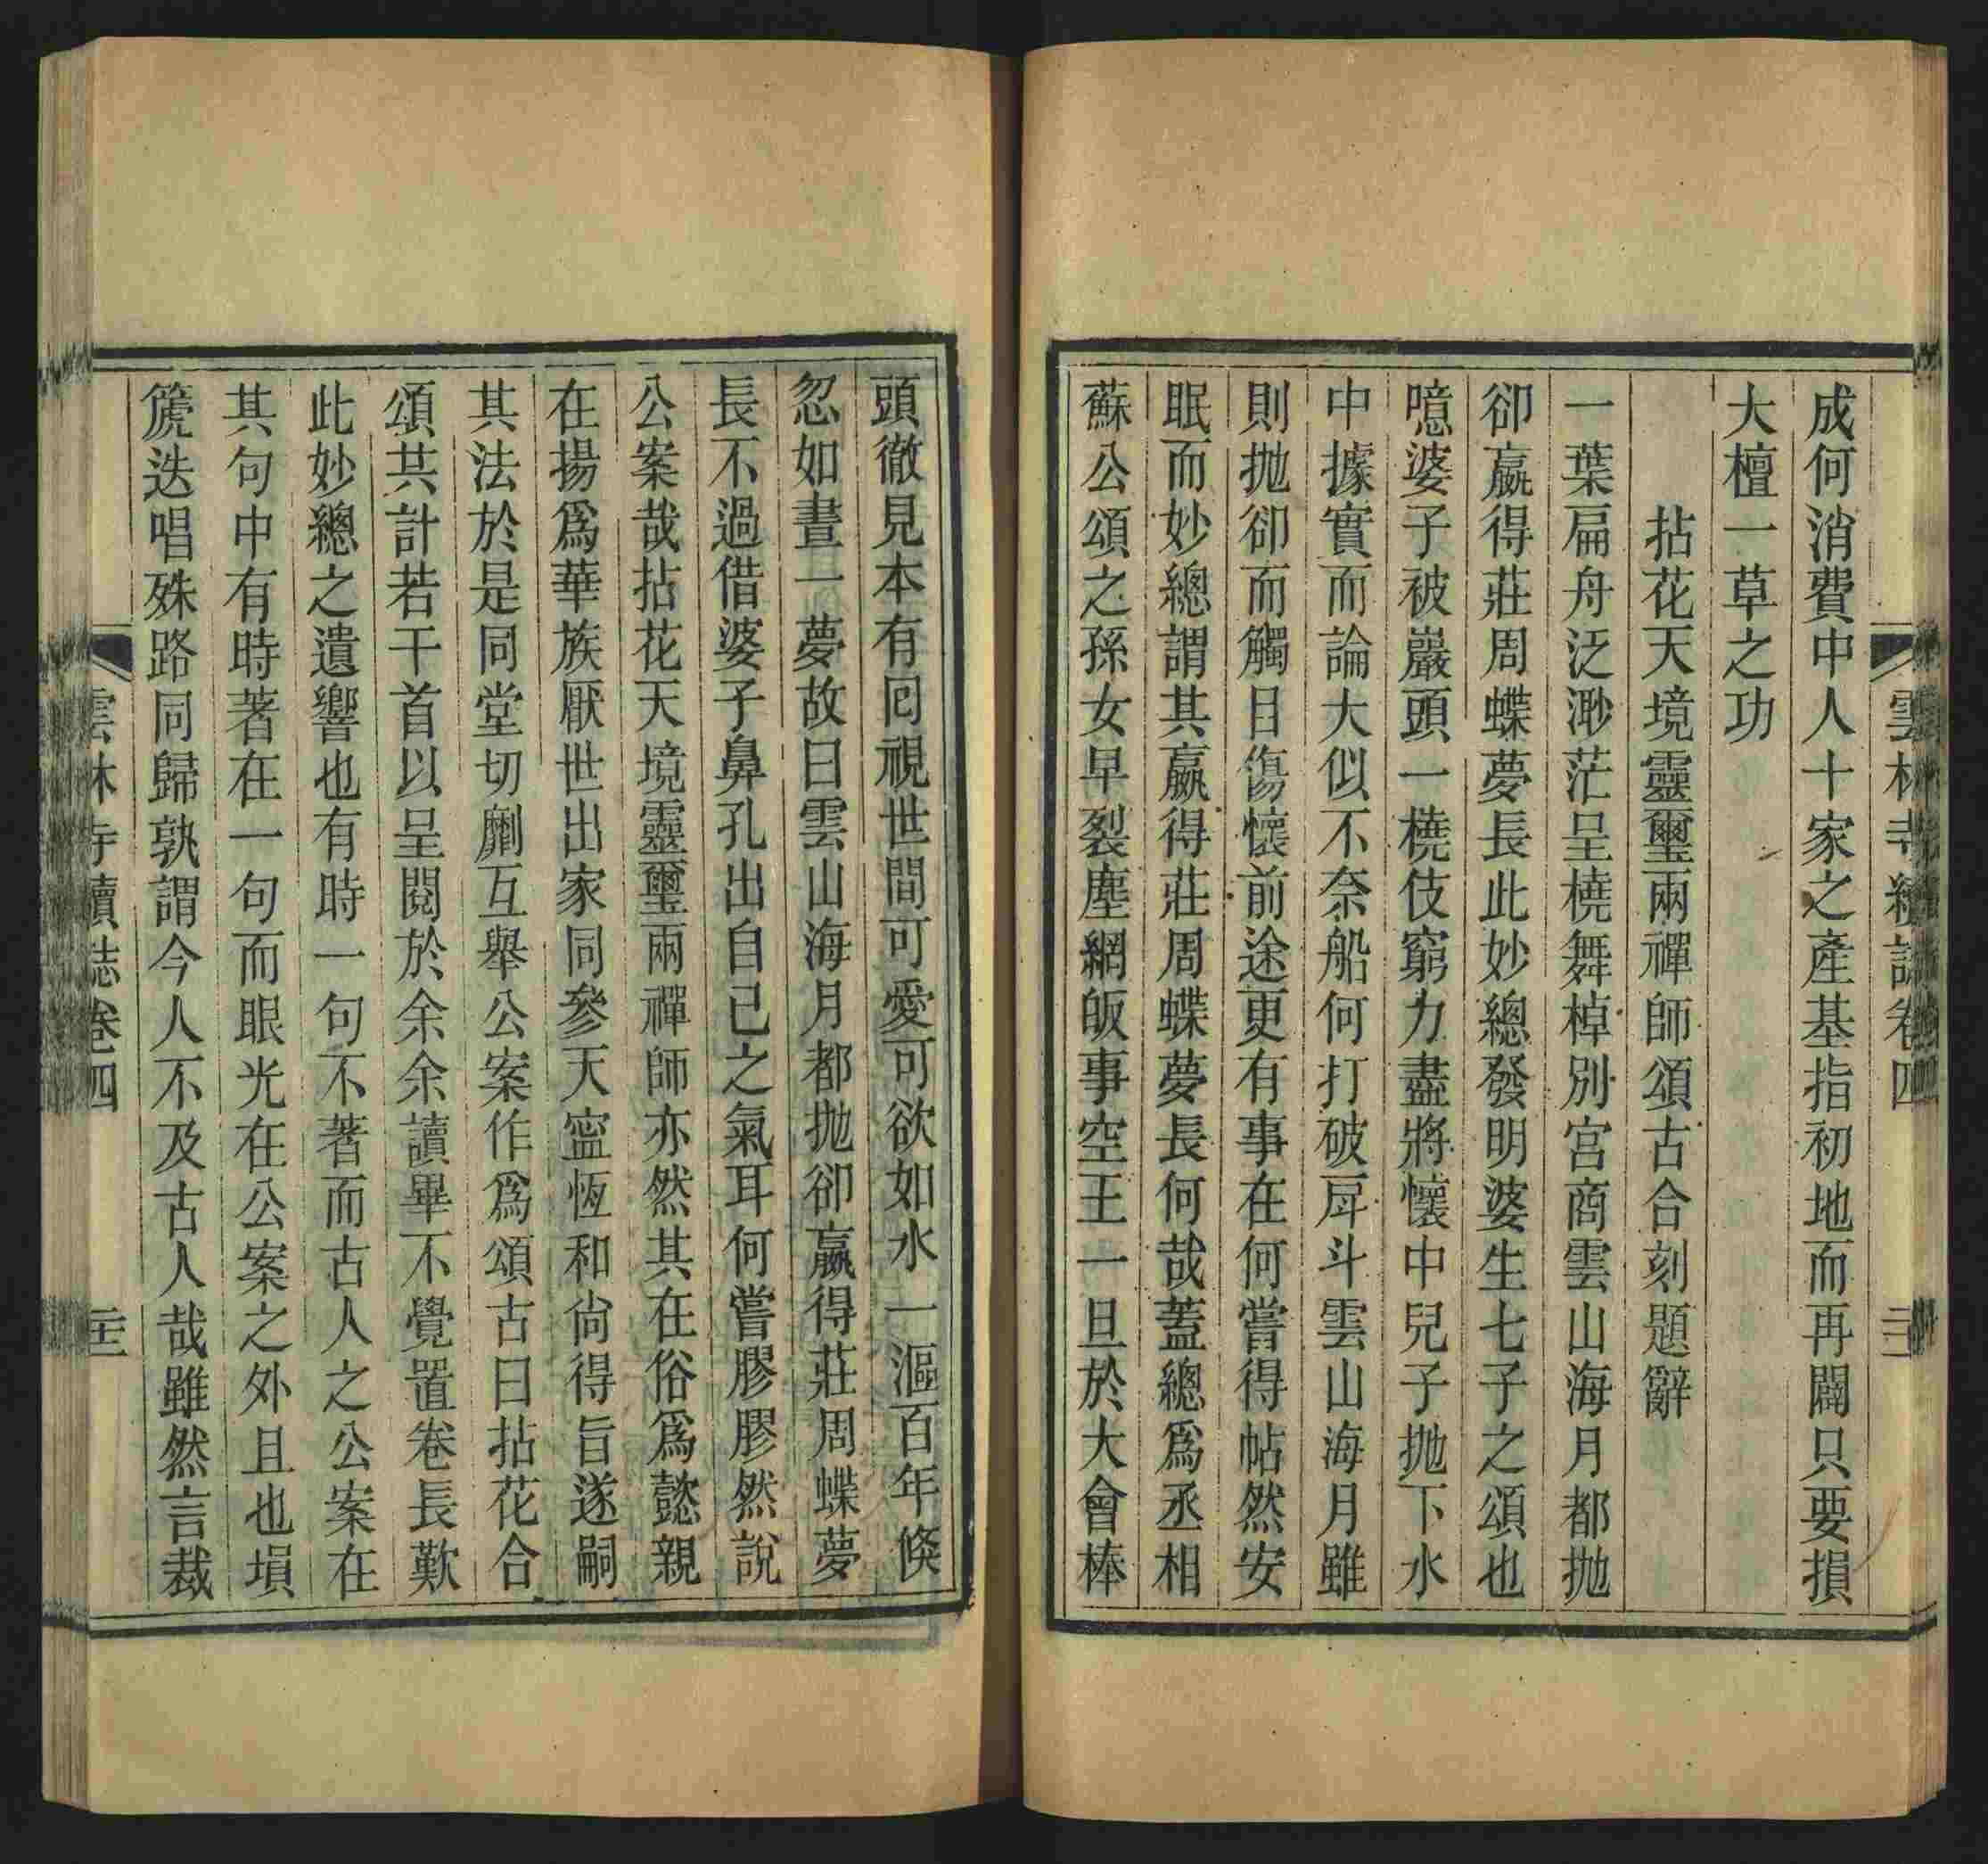 雲林寺續誌卷四
成何消費中人十家之產基指初地而再闢只要損
大檀一草之功
拈花天境靈璽兩禪師頌古合刻題辭
一葉扁舟泛渺茫呈橈舞棹別宮商雲山海月都抛
卻嬴得莊周蝶夢長此妙總發明婆生七子之頌也
噫婆子被巖頭一橈伎窮力盡將懷中兒子抛下水
中據實而論大似不奈船何打破戽斗雲山海月雖
則抛卻而觸目傷懷前途更有事在何嘗得帖然安
眠而妙總謂其嬴得莊周蝶夢長何哉蓋總爲丞相
蘇公頌之孫女早裂塵網皈事空王一旦於大會棒
頭徹見本有囘視世間可愛可欲如水一漚百年倏
忽如晝一夢故曰雲山海月都抛卻嬴得莊周蝶夢
長不過借婆子鼻孔出自已之氣耳何嘗膠膠然說
公案哉拈花天境靈璽兩禪師亦然其在俗爲懿親
在揚爲華族厭世出家同參天寍恆和尙得旨遂嗣
其法於是同堂切劘互舉公案作爲頌古曰拈花合
頌共計若干首以呈閱於余余讀畢不覺置卷長歎
此妙總之遺響也有時一句不著而古人之公案在
其句中有時著在一句而眼光在公案之外且也塤
篪迭唱殊路同歸孰謂今人不及古人哉雖然言裁
雲林寺續誌卷四